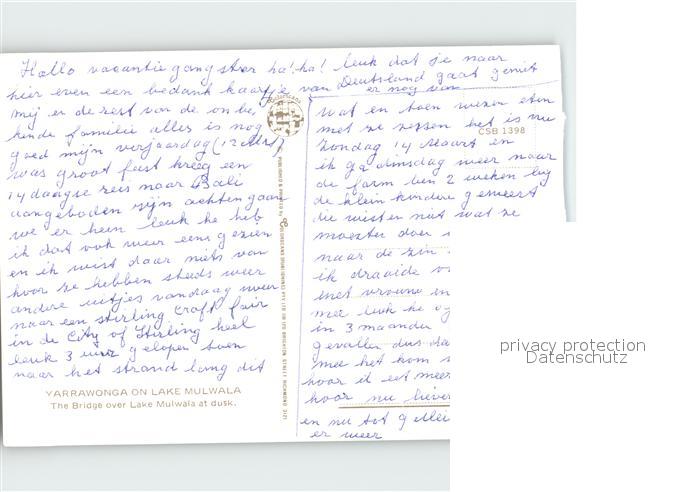 Hallo vacantie gangster ha! ha! leuk dat je naar
hier even een bedank kaartje van Deutsland gaat geniet
er nog van
mij en de rest van de onbe
kende familie alles is nog
goed mijn verjaardag (12 Mrt)
was groot feest kreeg een
14 daagse reis naar Bali
aangeboden zijn achten gaan
we er hein leuk he heb
ik dat ook weer eens gezien
en ik wist daar niets van
hoor ze hebben steeds weer
andere uitjes vandaag weer
naar een stirling craft fair
in de City of Stirling heel
leuk 3 uur gelopen toen
naar het strand lang dit
YARRAWONGA ON LAKE MULWALA
The Bridge over Lake Mulwala at dusk.
wat en toen wezen eten
met ze zessen het is nu
CSB 1398
zondag 14 Maart en
ik ga dinsdag weer naar
de farm ben 2 weken bij
de klein kinderen geweest
die wisten niet wat ze
moesten doen
naar de zin
ik draaide
met vrouwe en
mee leuk he
in 3 maanden
gevallen dus
mee het kom
hoor ik eet meer
hoor nu liever
en nu tot
er weer
privacy protection
Datenschutz